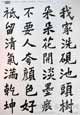 我家洗硯池頭樹
朵朵花開淡墨痕
不要人夸顏色好
祇留清氣滿乾坤